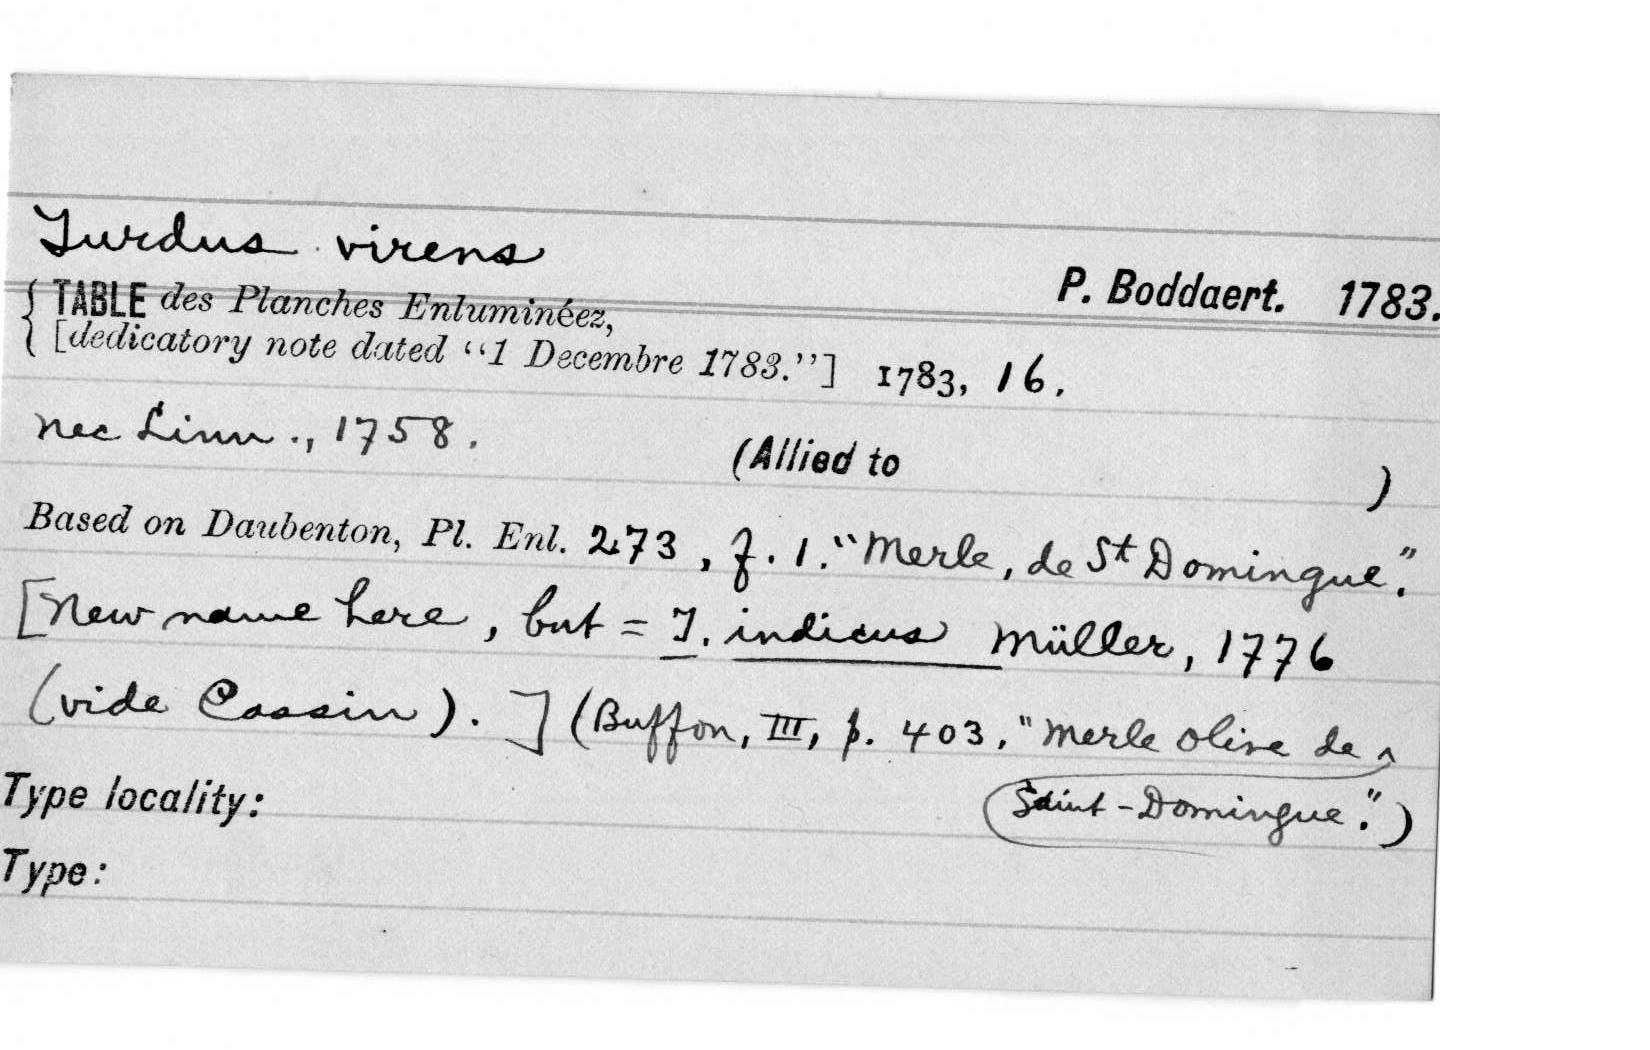 Turdus virens
P. Boddaert. 1783.
{ TABLE des Planches Enluminéez,
[dedicatory note dated “1 Decembre 1783.”] 1783, 16.
nec Linn., 1758.
(Allied to )
Based on Daubenton, Pl. Enl. 273, f. 1. "Merle, de St Domingue".
[New name here, but = T. indicus Müller, 1776
(vide Cassin). ] (Buffon, III, p. 403, "Merle olive de ^
Saint-Domingue".)
Type locality:
Type: